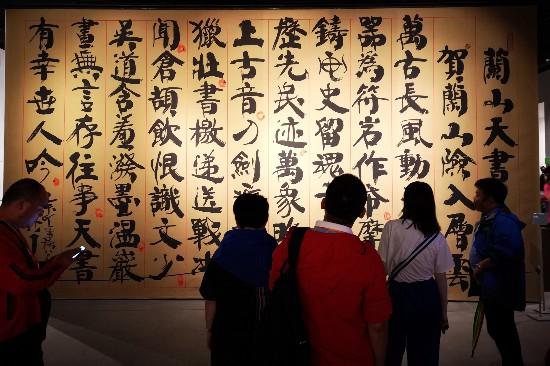 蘭山天書
賀蘭山險入層
萬古長風動
器為符岩作
鑄史留魂
歷先民迹萬象
上古音刀劍
獵壯書檄遞送戰
聞倉頡飲恨識文少
吳道含羞潑墨温巖
畫無言存往事天書
有幸世人吟